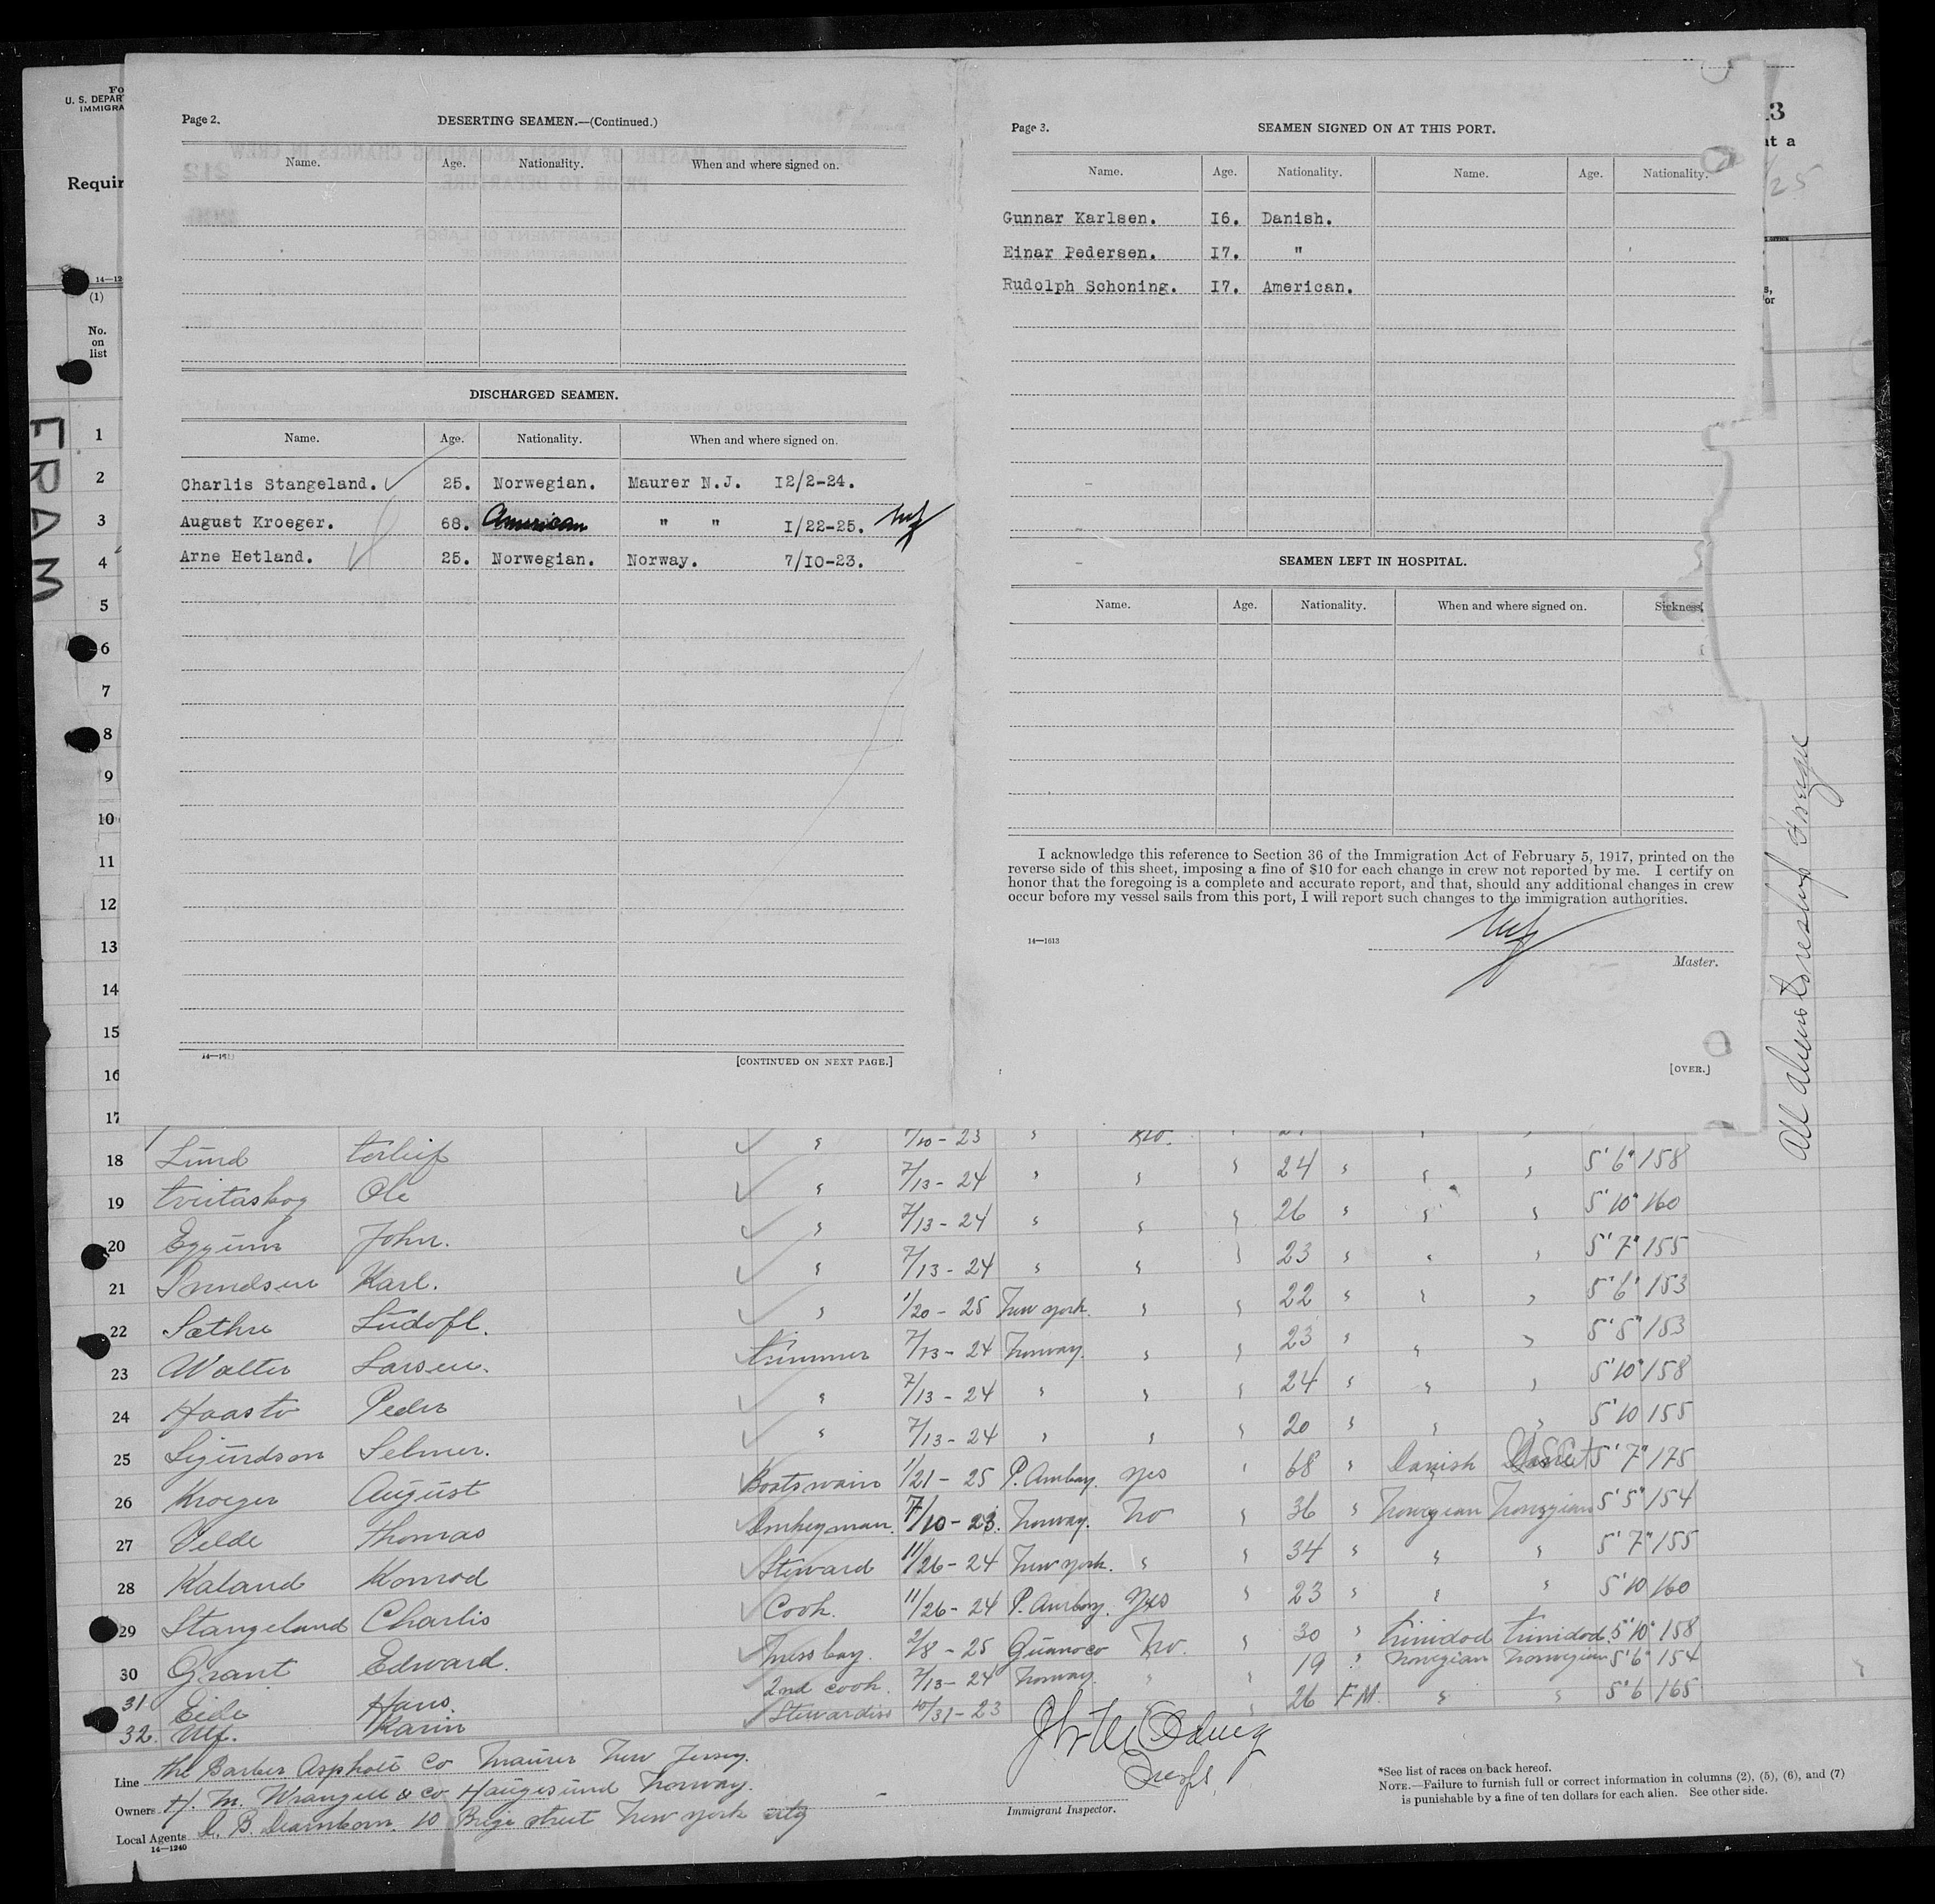 Page 2.
DESERTING SEAMEN.—(Continued.)
Name. Age. Nationality. When and where signed on.
DISCHARGED SEAMEN.
Name. Age. Nationality. When and where signed on.
Charlis Stangeland. 25. Norwegian. Maurer N.J. I2/2-24.
August Kroeger. 68. American " " I/22-25.
Arne Hetland. 25. Norwegian. Norway. 7/I0-23.
[CONTINUED ON NEXT PAGE.]
Page 3.
SEAMEN SIGNED ON AT THIS PORT.
Name. Age. Nationality. Name. Age. Nationality.
Gunnar Karlsen. I6. Danish.
Einar Pedersen. I7. "
Rudolph Schoning. I7. American.
SEAMEN LEFT IN HOSPITAL.
Name. Age. Nationality. When and where signed on. Sickness
I acknowledge this reference to Section 36 of the Immigration Act of February 5, 1917, printed on the
reverse side of this sheet, imposing a fine of $10 for each change in crew not reported by me. I certify on
honor that the foregoing is a complete and accurate report, and that, should any additional changes in crew
occur before my vessel sails from this port, I will report such changes to the immigration authorities.
14—1613
Master.
[OVER.]
Fo
U. S. DEPAR
IMMIGRA
Requir
14—12
(1)
No.
on
list
FRAM
1
2
3
4
5
6
7
8
9
10
11
12
13
14
15
16
17
3
at a
25
All aliens to reship foreign
7/10-23 " No.
18 Lund Torleif " 7/13-24 " " " 24 " " " 5'6" 158
19 Ole " 7/13-24 " " " 26 " " " 5'10" 160
20 Eggum John. " 7/13-24 " " " 23 " " " 5'7" 155
21 Karl. " 1/20-25 New York. " " 22 " " " 5'6" 153
22 Sæthre Ludofl. Trimmer 7/13-24 Norway. " " 23 " " " 5'5" 153
23 Walter Larsen. " 7/13-24 " " " 24 " " " 5'10" 158
24 Haasto Peder " 7/13-24 " " " 20 " " " 5'10 155
25 Sigurdson Selmer. Boatswain 1/21-25 P. Amboy. yes " 68 " Danish 5'7" 175
26 Kroeger August Donkeyman. 7/10-23. Norway. No " 36 " Norwegian Norwegian 5'5" 154
27 Velde Thomas Steward 11/26-24 New York. " " 34 " " " 5'7" 155
28 Kaland Konrod Cook. 11/26-24 P. Amboy. Yes " 23 " " " 5'10 160
29 Stangeland Charlis Messboy. 2/8-25 Guanoco No. " 30 " Trinidad Trinidad. 5'10" 158
30 Grant Edward. 2nd cook. 7/13-24 Norway. " 19 " Norwegian Norwegian 5'6" 154
31 Eide Hans. Stewardess 10/31-23 " 26 F M. " " 5'6 165
32. Ulf. Karin
Line The Barber Asphalt Co Maurer New Jersey.
Owners H. M. Wrangell & Co Haugesund Norway.
Local Agents D. B. Dearborn. 10 Brige street New York city
14—1240
Immigrant Inspector.
*See list of races on back hereof.
NOTE.—Failure to furnish full or correct information in columns (2), (5), (6), and (7)
is punishable by a fine of ten dollars for each alien. See other side.